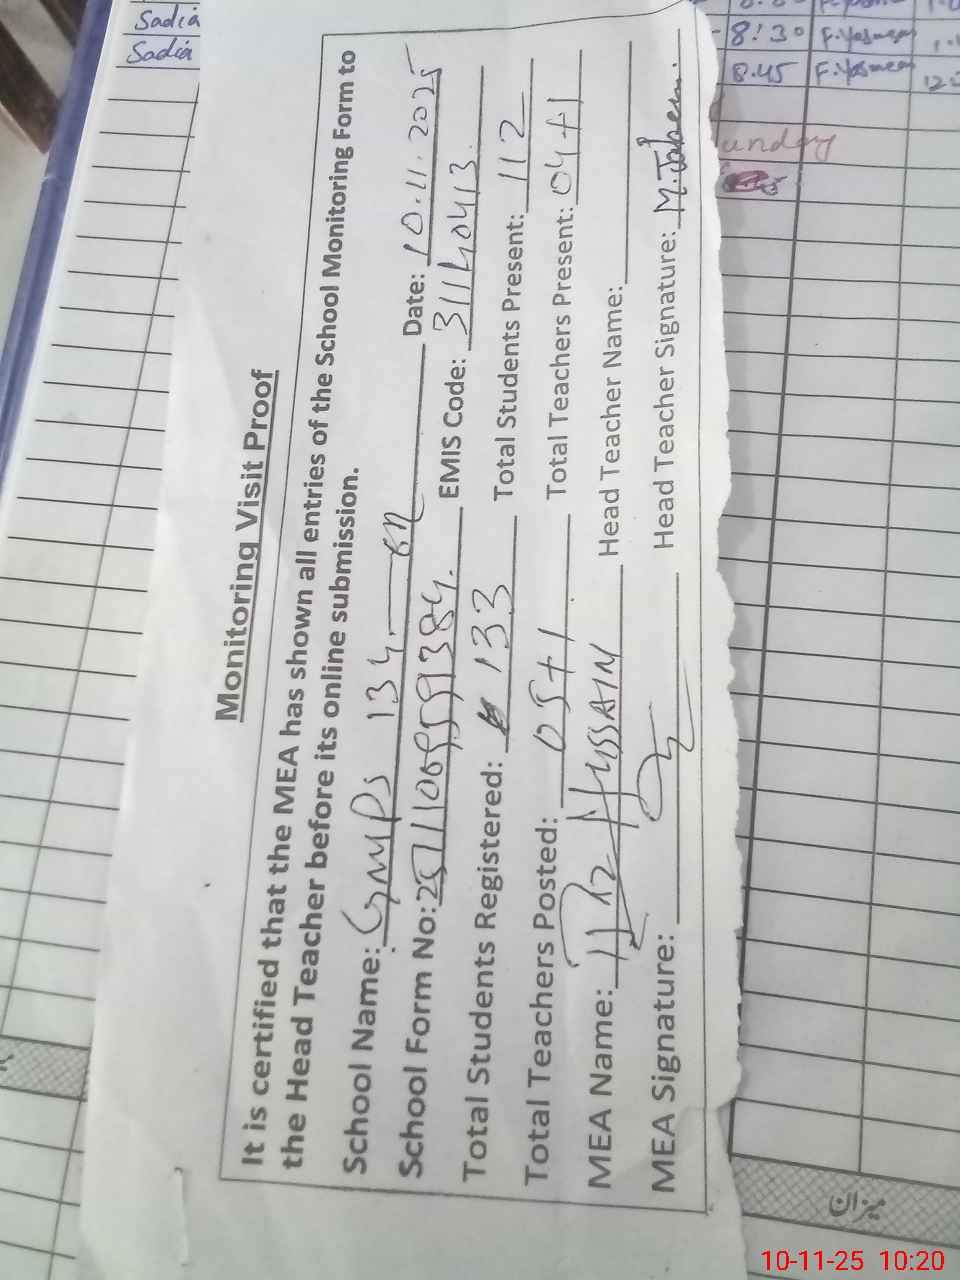 Monitoring Visit Proof
It is certified that the MEA has shown all entries of the School Monitoring Form to
the Head Teacher before its online submission.
School Name: GMPS 134 Date: 10.11.2025
School Form No: EMIS Code: 31140413
Total Students Registered: 133 Total Students Present: 112
Total Teachers Posted: 05+1 Total Teachers Present: 04+1
MEA Name: HUSSAIN Head Teacher Name:
MEA Signature: Head Teacher Signature:
Sadia
Sadia
8:30
8.45
unday
میزان
10-11-25 10:20